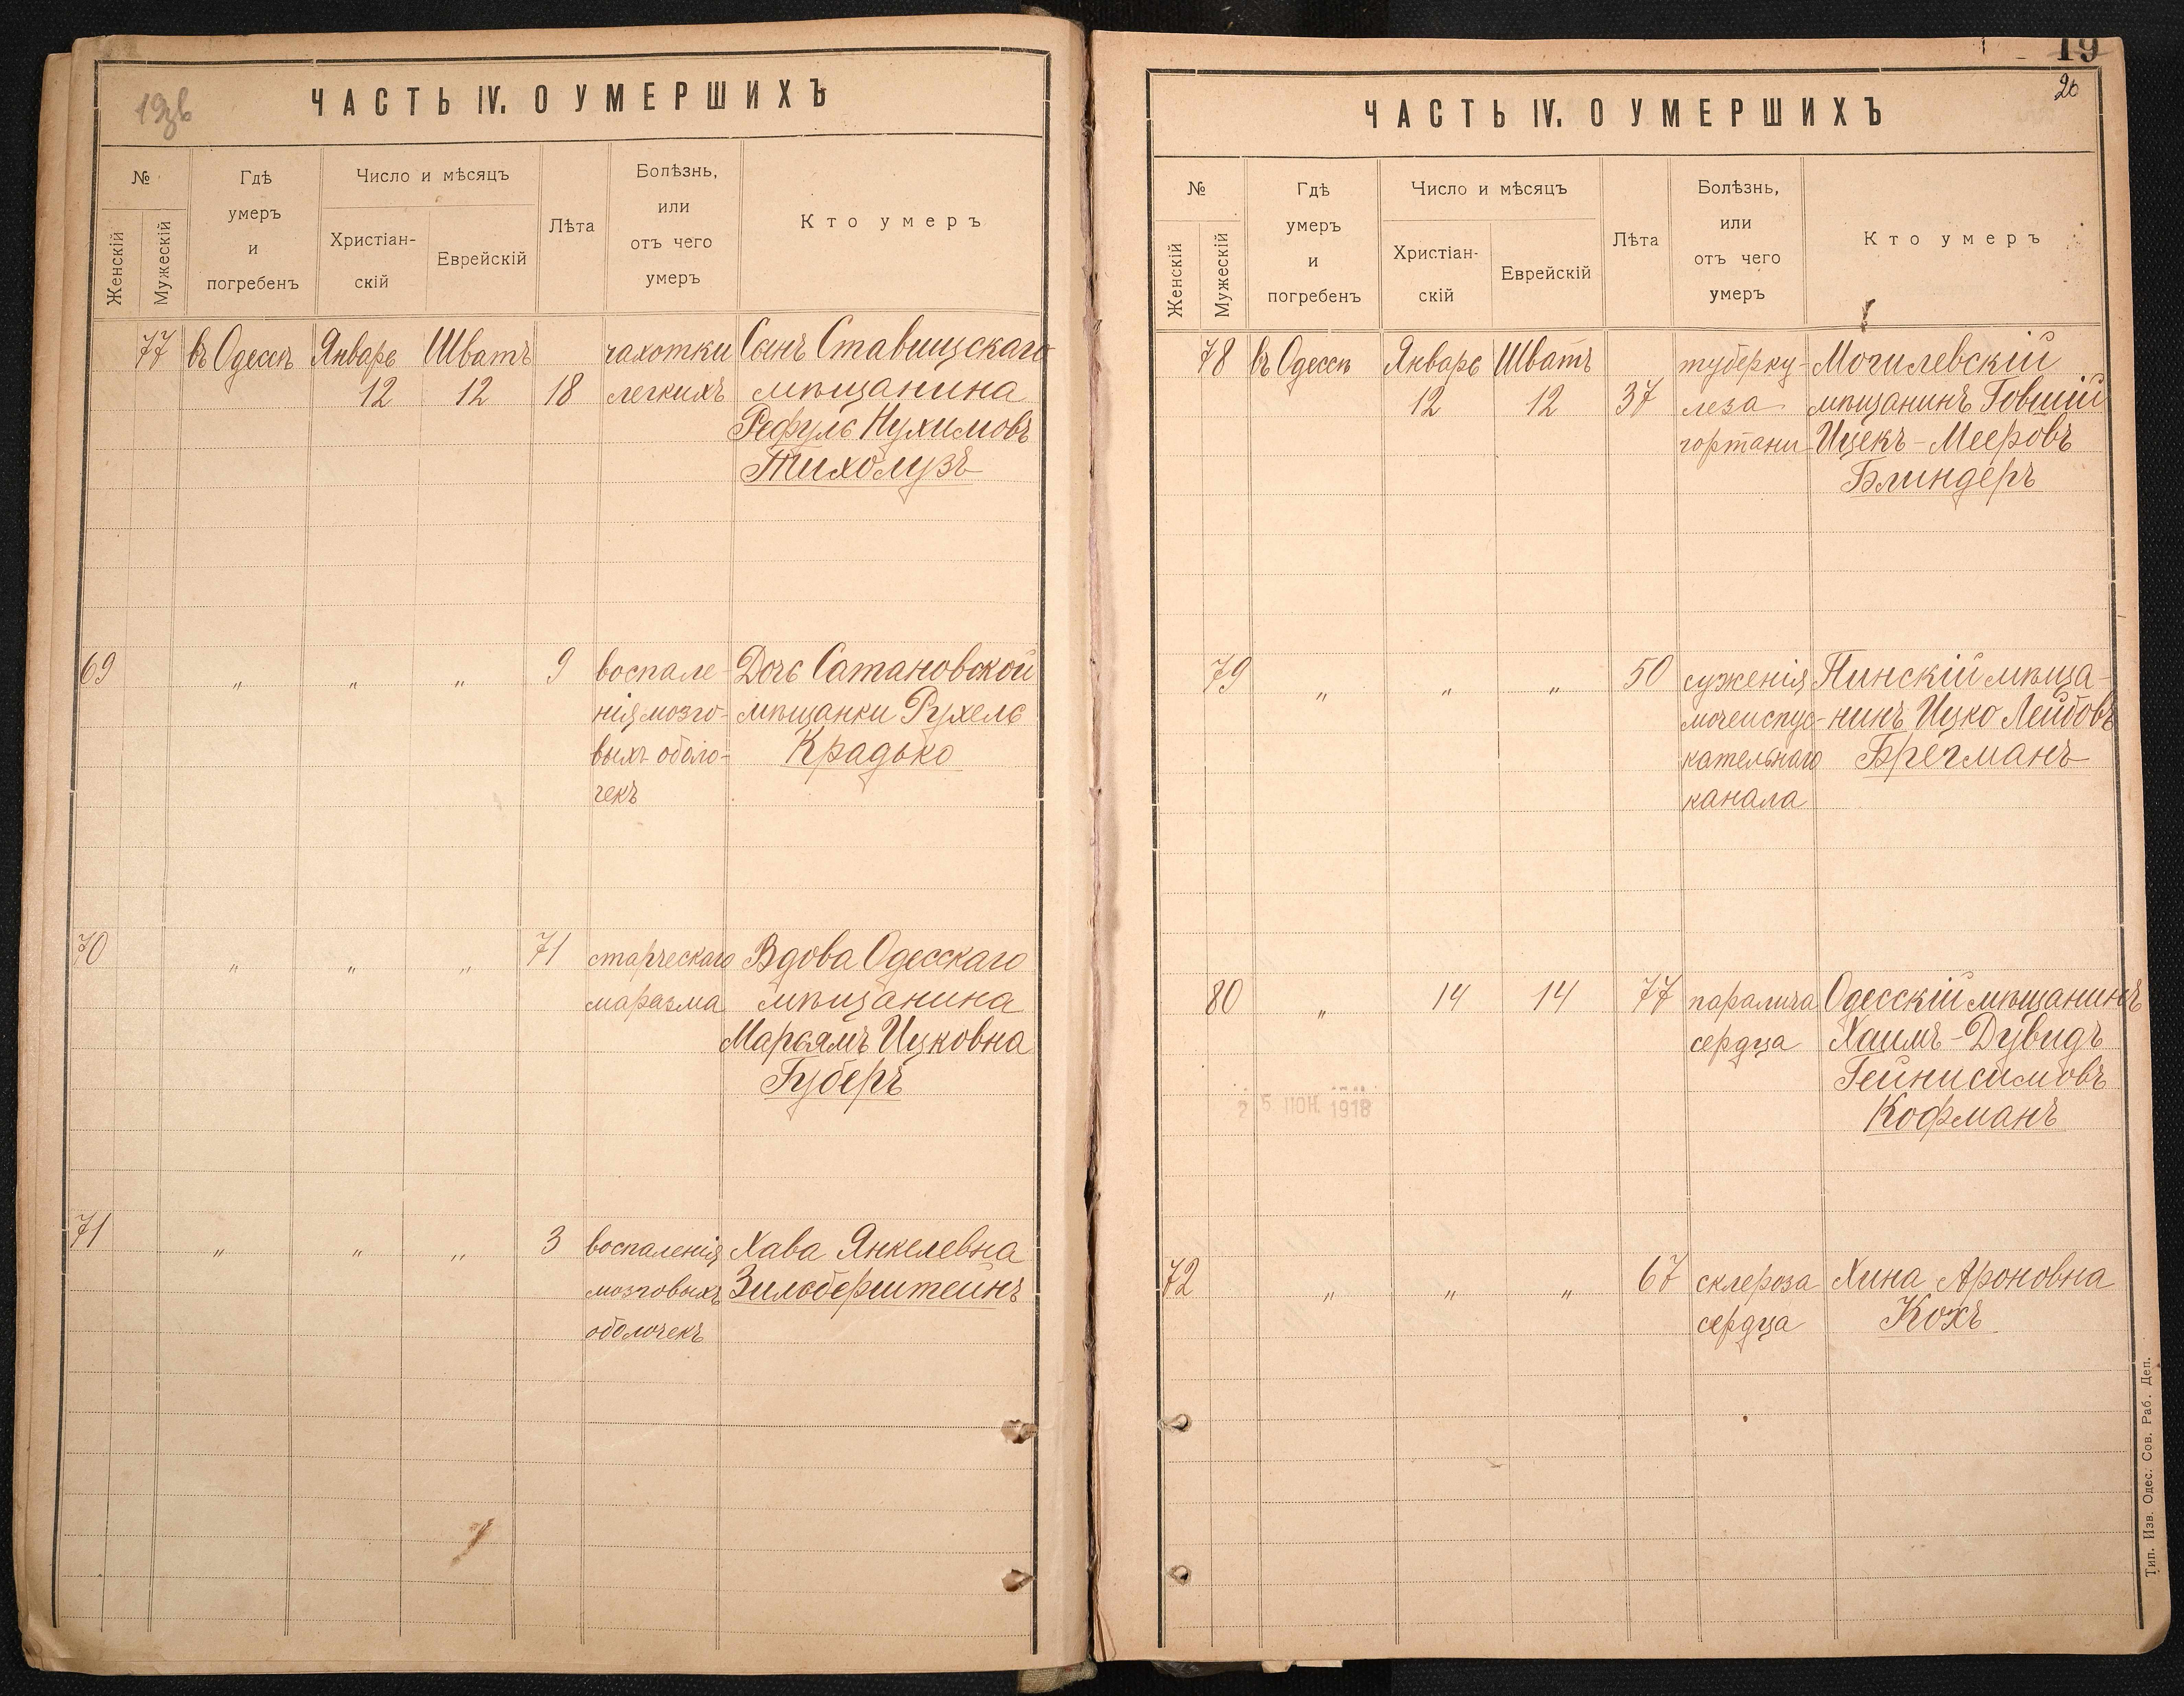 19
20
ЧАСТЬ IV. О УМЕРШИХЪ
№
Женскій
Мужескій
Гдѣ
умеръ
и
погребенъ
Число и мѣсяцъ
Христіан-
скій
Еврейскій
Лѣта
Болѣзнь,
или
отъ чего
умеръ
Кто умеръ
77 въ Одессѣ Январь Шватъ чахотки Сынъ Ставищскаго
12 12 18 легкихъ мѣщанина
Рефуль Нухимовъ
Тихолузъ
69 " " " 9 воспале- Дочь Сатановской
нія мозго- мѣщанки Рухель
выхъ оболо- Крадько
чекъ
70 " " " 71 старческаго Вдова Одесскаго
маразма мѣщанина
Марьямъ Ицковна
Губеръ
71 " " " 3 воспаленія Хава Янкелевна
мозговыхъ Зильберштейнъ
оболочекъ
ЧАСТЬ IV. О УМЕРШИХЪ
№
Женскій
Мужескій
Гдѣ
умеръ
и
погребенъ
Число и мѣсяцъ
Христіан-
скій
Еврейскій
Лѣта
Болѣзнь,
или
отъ чего
умеръ
Кто умеръ
78 въ Одессѣ Январь Шватъ туберку- Могилевскій
12 12 37 леза мѣщанинъ Говшій
гортани Ицекъ-Мееровъ
Блиндеръ
79 " " " 50 суженія Пинскій мѣща-
мочеиспус- нинъ Ицко Лейбовъ
кательнаго Брегманъ
канала
80 " 14 14 77 паралича Одесскій мѣщанинъ
сердца Хаимъ-Дувидъ
Гейнисимовъ
Кофманъ
25 1918
72 " " " 67 склероза Хина Ароновна
сердца Кохъ
Тип. Изв. Одес. Сов. Раб. Деп.